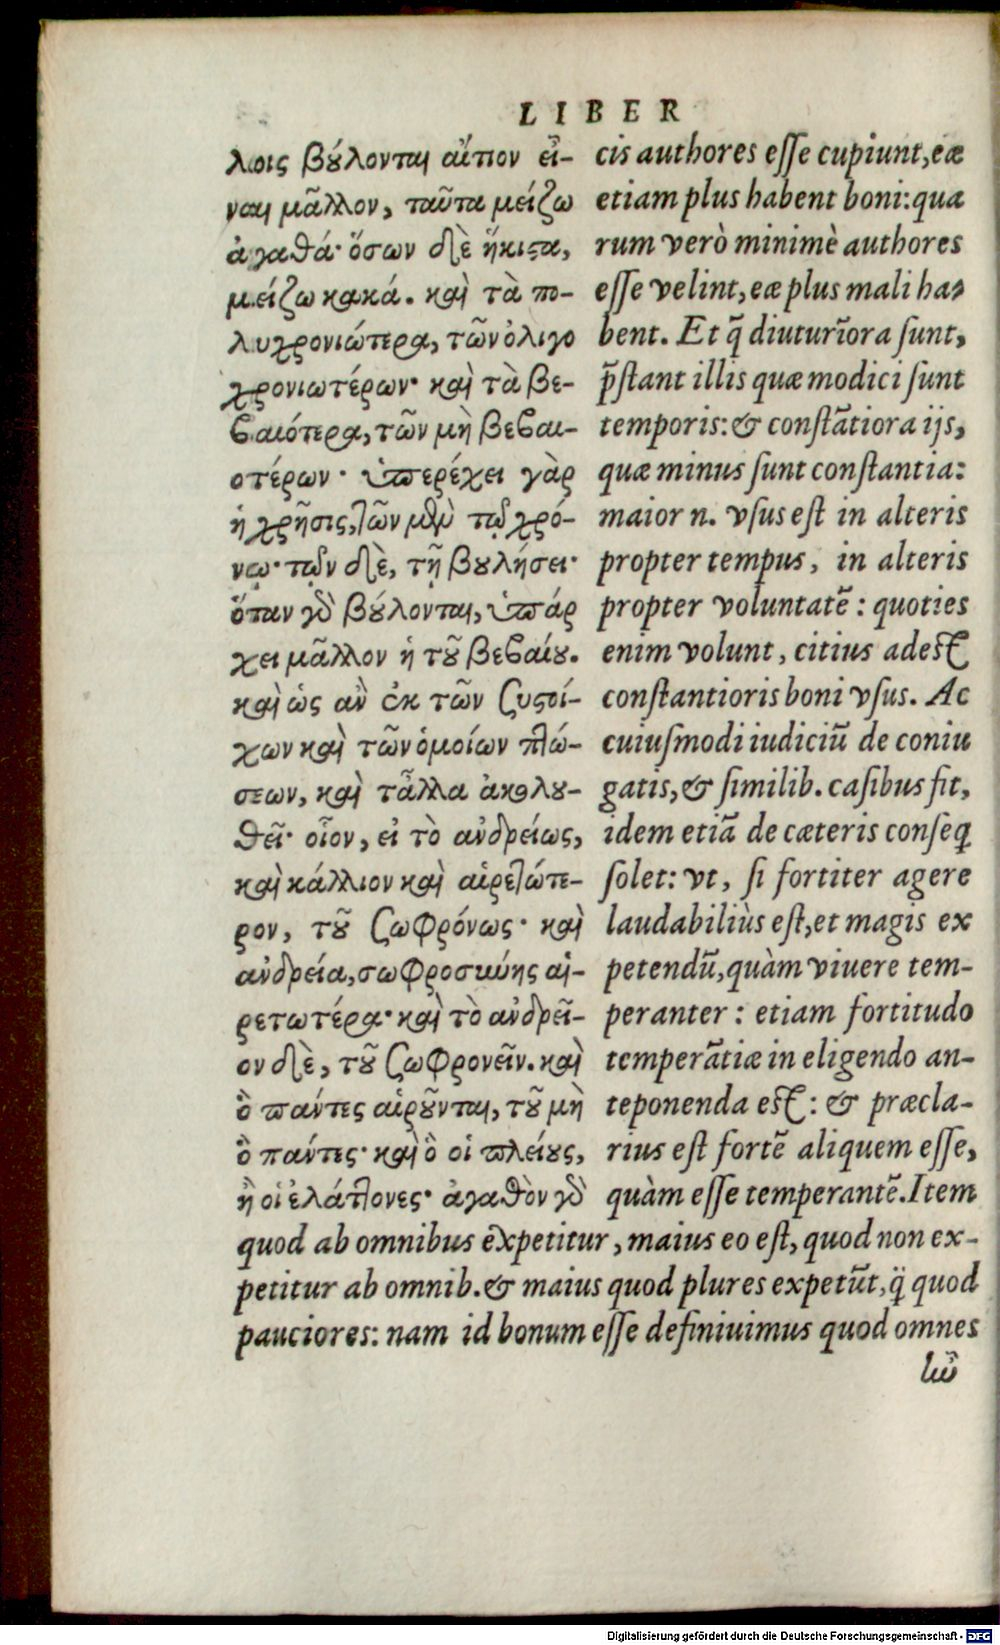 LIBER
λοις βούλονται αἴτιον εἶ-
ναι μᾶλλον, ταῦτα μείζω
ἀγαθά· ὅσων δὲ ἥκιστα,
μείζω κακά. καὶ τὰ πο-
λυχρονιώτερα, τῶν ὀλιγο
χρονιωτέρων· καὶ τὰ βε-
βαιότερα, τῶν μὴ βεβαι-
οτέρων· ὑπερέχει γὰρ
ἡ χρῆσις, τῶν μὲν τῷ χρό-
νῳ· τῶν δὲ, τῇ βουλήσει·
ὅταν γὰρ βούλονται, ὑπάρ
χει μᾶλλον ἡ τοῦ βεβαίου.
καὶ ὡς ἂν ἐκ τῶν συστοί-
χων καὶ τῶν ὁμοίων πτώ-
σεων, καὶ τἆλλα ἀκολου-
θεῖ· οἷον, εἰ τὸ ἀνδρείως,
καὶ κάλλιον καὶ αἱρετώτε-
ρον, τοῦ σωφρόνως· καὶ
ἀνδρεία, σωφροσύνης αἱ-
ρετωτέρα· καὶ τὸ ἀνδρεῖ-
ον δὲ, τοῦ σωφρονεῖν. καὶ
ὃ πάντες αἱροῦνται, τοῦ μὴ
ὃ πάντες· καὶ ὃ οἱ πλείους,
ἢ οἱ ἐλάττονες· ἀγαθὸν γὰρ
cis authores esse cupiunt, eæ
etiam plus habent boni: qua
rum verò minimè authores
esse velint, eæ plus mali ha-
bent. Et q̃ diuturiora sunt,
p̃stant illis quæ modici sunt
temporis: & constãtiora ijs,
quæ minus sunt constantia:
maior n. vsus est in alteris
propter tempus, in alteris
propter voluntatẽ: quoties
enim volunt, citius adest
constantioris boni vsus. Ac
cuiusmodi iudiciũ de coniu
gatis, & similib. casibus fit,
idem etiã de cæteris conseq
solet: vt, si fortiter agere
laudabiliùs est, et magis ex
petendũ, quàm viuere tem-
peranter: etiam fortitudo
temperãtiæ in eligendo an-
teponenda est: & præcla-
rius est fortẽ aliquem esse,
quàm esse temperantẽ. Item
quod ab omnibus expetitur, maius eo est, quod non ex-
petitur ab omnib. & maius quod plures expetũt, q̃ quod
pauciores: nam id bonum esse definiuimus quod omnes
ἦν
Digitalisierung gefördert durch die Deutsche Forschungsgemeinschaft - DFG